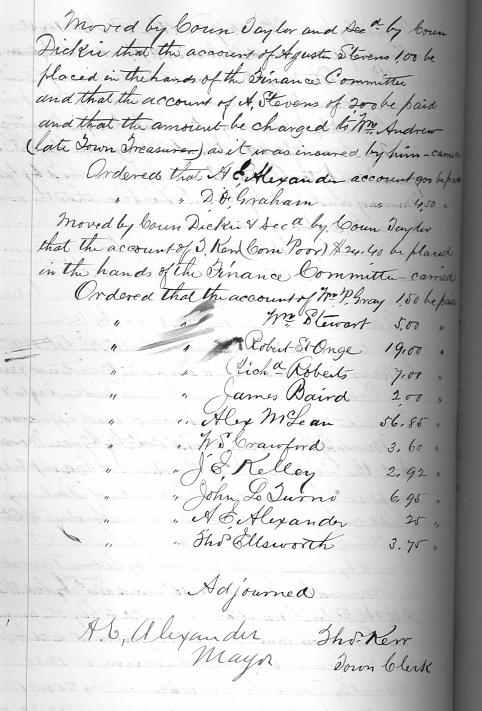 Moved by Coun Taylor and Secd by Coun
Dickie that the account of Agustu Stevens 100 be
placed in the hands of the Finance Committee
and that the account of A. Stevens of 200 be paid
and that the amount be charged to Wm Andrew
(late Town Treasurer) as it was insured by him - carried
Ordered that A E Alexander account 900 be paid
" " D. D. Graham " 4.50 "
Moved by Coun Dickie & Secd by Coun Taylor
that the account of T. Kerr (Com Poor) $24.40 be placed
in the hands of the Finance Committee - carried
Ordered that the account of Wm P. Gray 1.50 be paid
" " Wm Stewart 5.00 "
" " Robert St Onge 19.00 "
" " Richd Roberts 7.00 "
" " James Baird 2.00 "
" " Alex McLean 56.85 "
" " W S Crawford 3.60 "
" " J. E. Kelley 2.92 "
" " John Le 6.95 "
" " A E Alexander 25 "
" " Thos Ellsworth 3.75 "
Adjourned
A. E, Alexander
Mayor
Thos. Kerr
Town Clerk